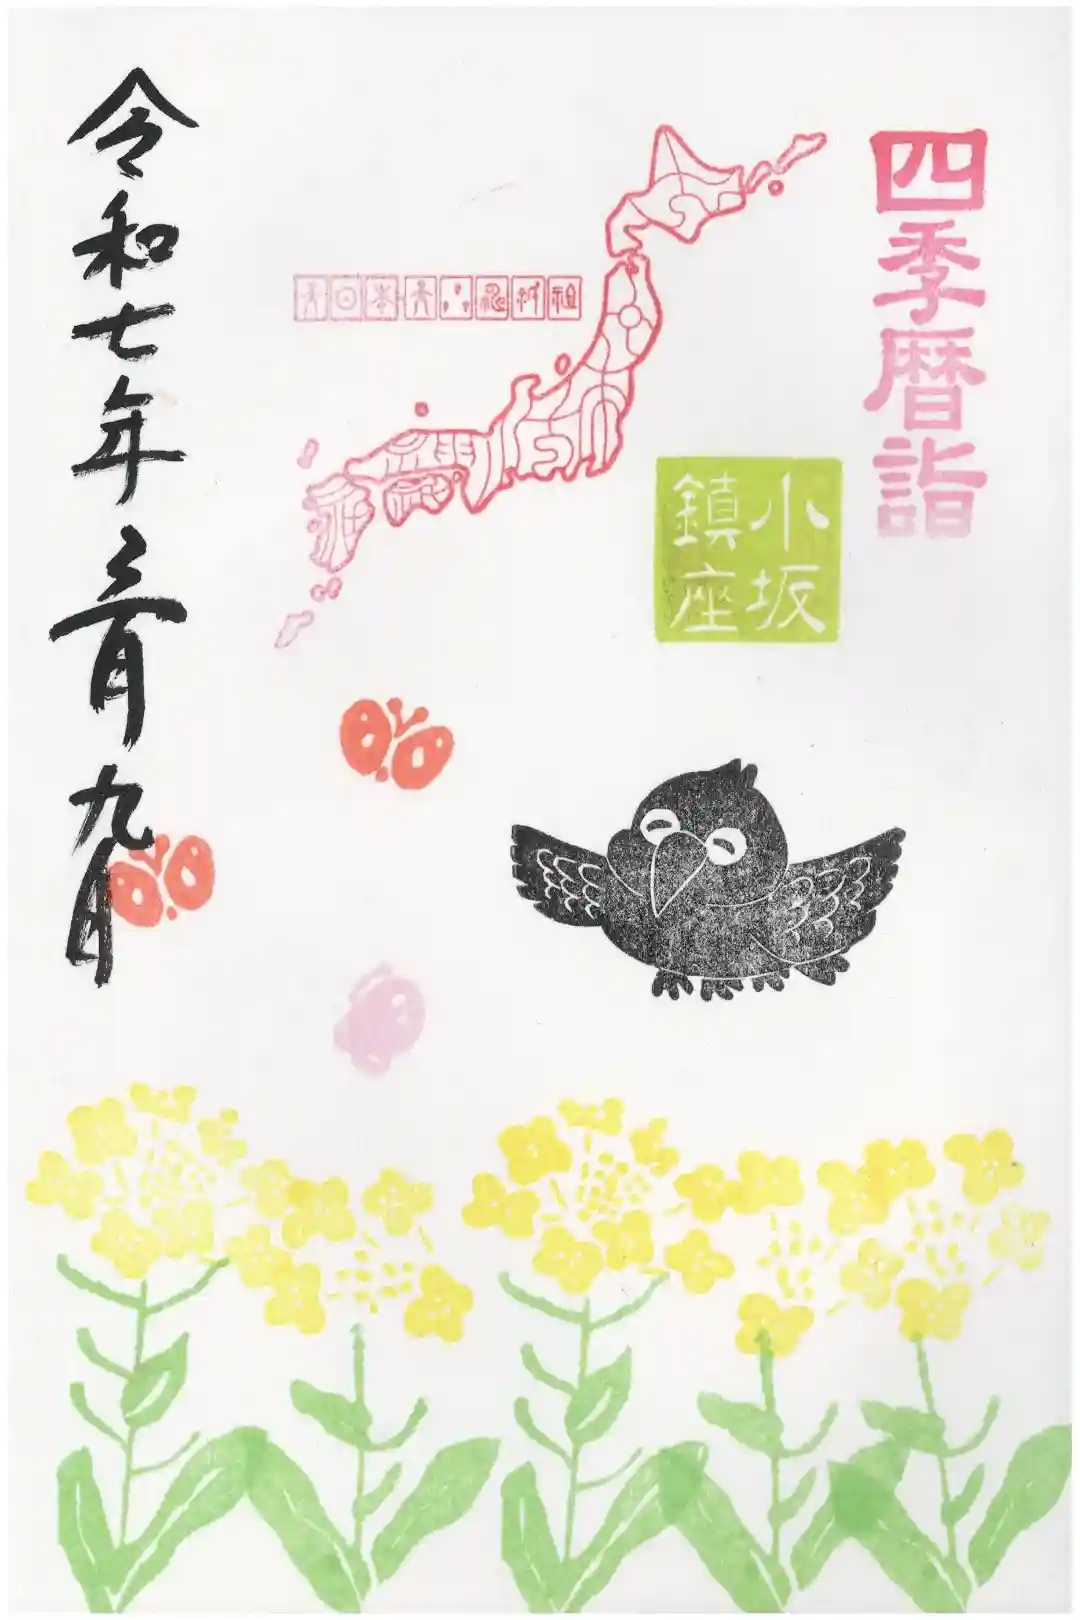 四季暦詣
小坂
鎮座
令和七年三月九日